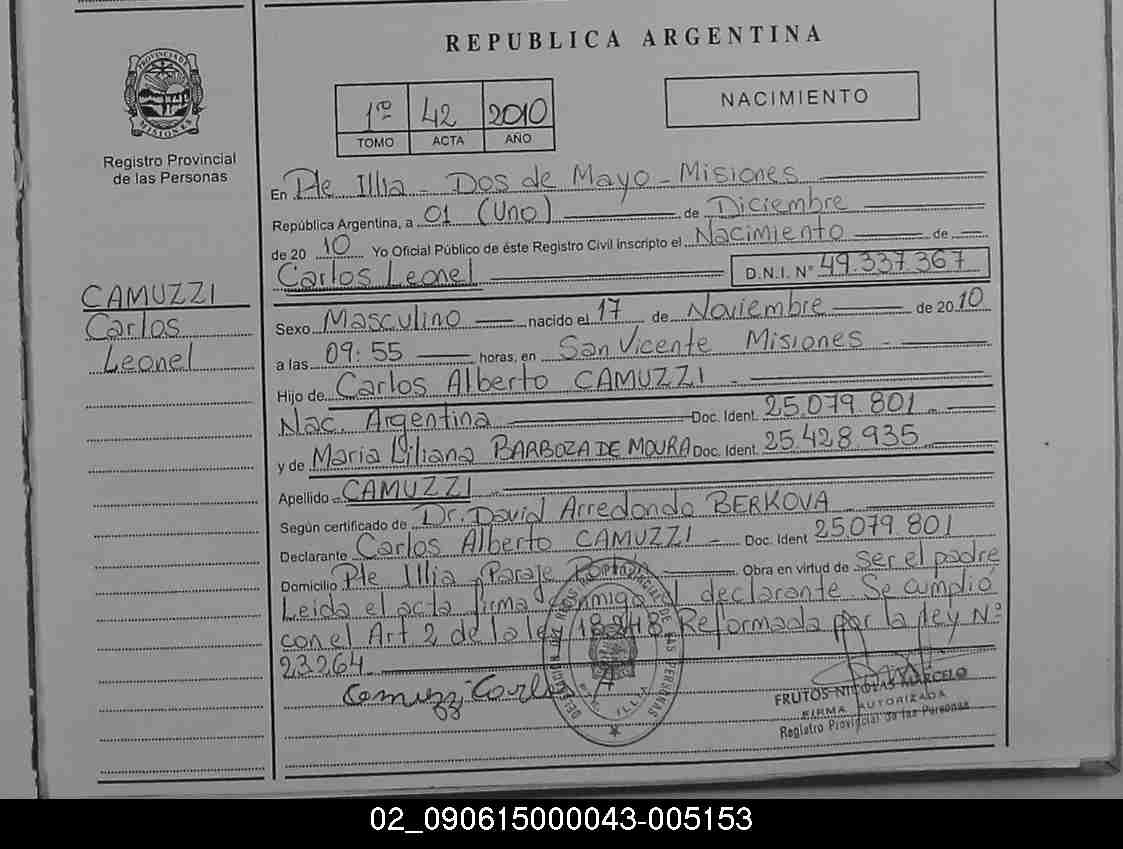 REPUBLICA ARGENTINA
PROVINCIA DE MISIONES
Registro Provincial
de las Personas
1ro 42 2010
TOMO ACTA AÑO
NACIMIENTO
En Pte Illia - Dos de Mayo - Misiones
República Argentina, a 01 (Uno) de Diciembre
de 20 10 Yo Oficial Público de éste Registro Civil inscripto el Nacimiento de
Carlos Leonel D.N.I. Nº 49.337.367
CAMUZZI
Carlos
Leonel
Sexo Masculino nacido el 17 de Noviembre de 2010
a las 09:55 horas, en San Vicente Misiones -
Hijo de Carlos Alberto CAMUZZI -
Nac. Argentina Doc. Ident. 25.079.801
y de Maria Liliana BARBOZA DE MOURA Doc. Ident. 25.428.935
Apellido CAMUZZI
Según certificado de Dr. David Arredondo BERKOVA
Declarante Carlos Alberto CAMUZZI - Doc. Ident 25.079.801
Domicilio Pte Illia - Paraje Obra en virtud de ser el padre
Leida el acta firma conmigo el declarante. Se cumplió
con el Art. 2 de la ley 18248 Reformada por la ley Nº
23264
Camuzzi Carlos A
DE LAS PERSONAS
ILLIA
FRUTOS NICOLAS MARCELO
FIRMA AUTORIZADA
Registro Provincial de las Personas
02_090615000043-005153